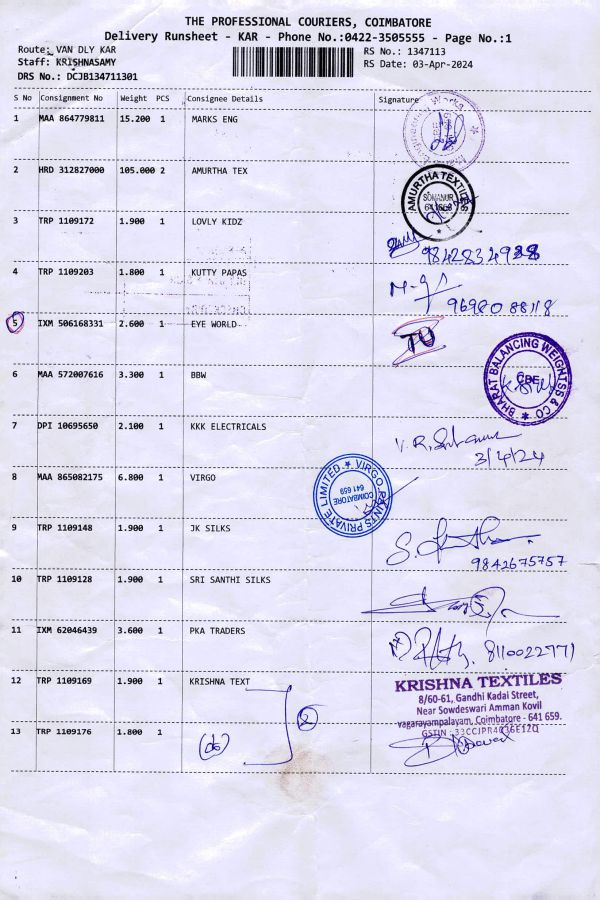 THE PROFESSIONAL COURIERS, COIMBATORE
Delivery Runsheet - KAR - Phone No.:0422-3505555 - Page No.:1
Route: VAN DLY KAR
RS No.: 1347113
Staff: KRISHNASAMY
RS Date: 03-Apr-2024
DRS No.: DCJB134711301
S No Consignment No Weight PCS Consignee Details Signature
1 MAA 864779811 15.200 1 MARKS ENG
2 HRD 312827000 105.000 2 AMURTHA TEX
AMURTHA TEXTILES
SOMANUR
3 TRP 1109172 1.900 1 LOVLY KIDZ
4 TRP 1109203 1.800 1 KUTTY PAPAS
5 IXM 506168331 2.600 1 EYE WORLD
6 MAA 572007616 3.300 1 BBW
BHARAT BALANCING WEIGHTSS & CO.
CBE
7 DPI 10695650 2.100 1 KKK ELECTRICALS
3/4/24
8 MAA 865082175 6.800 1 VIRGO
VIRGO PAINTS PRIVATE LIMITED
COIMBATORE
641 659
9 TRP 1109148 1.900 1 JK SILKS
9842675757
10 TRP 1109128 1.900 1 SRI SANTHI SILKS
11 IXM 62046439 3.600 1 PKA TRADERS
8110022771
12 TRP 1109169 1.900 1 KRISHNA TEXT
KRISHNA TEXTILES
8/60-61, Gandhi Kadai Street,
Near Sowdeswari Amman Kovil
vagarayampalayam, Coimbatore - 641 659.
GSTIN : 33CCJPR4636E1ZQ
2
13 TRP 1109176 1.800 1